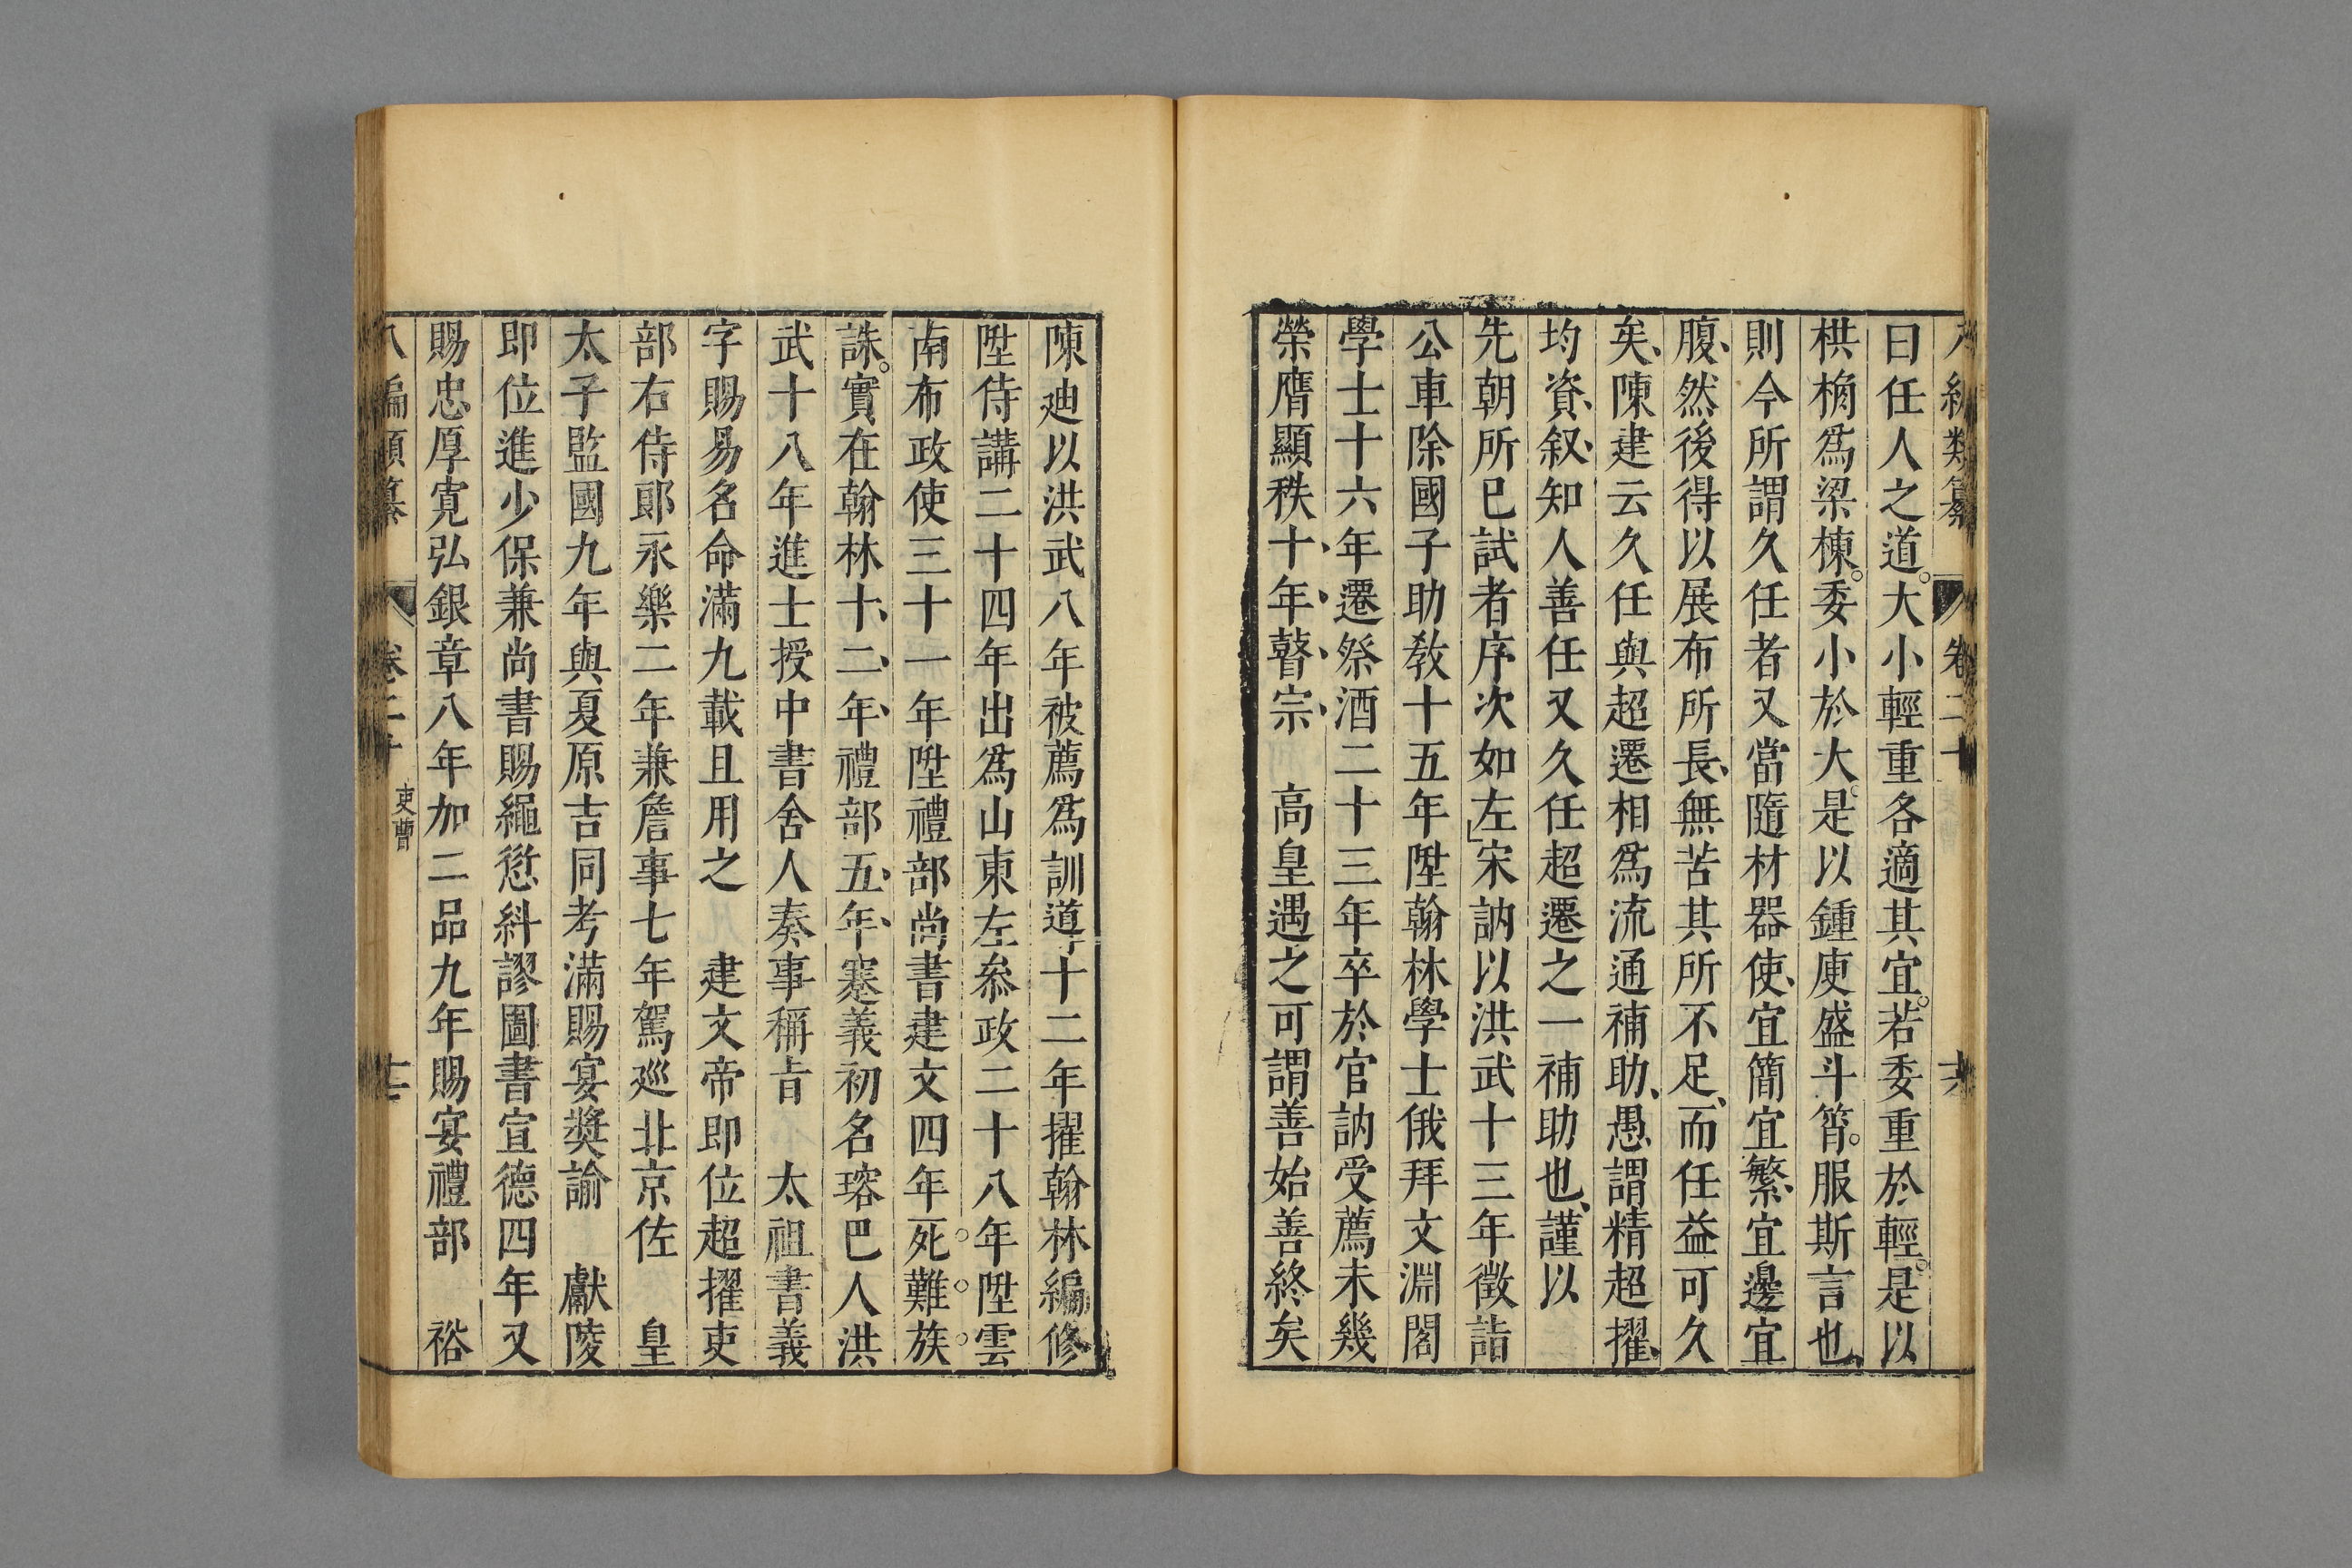 曰任人之道。大小輕重各適其宜。若委重於輕。是以
栱桷爲梁棟。委小於大。是以鍾庾盛斗筲。服斯言也、
則今所謂久任者又當隨材器使、宜簡宜繁、宜邊宜
腹、然後得以展布所長、無苦其所不足、而任益可久
矣、陳建云久任與超遷相爲流通補助、愚謂精超擢、
均資、叙、知人善任又久任超遷之一補助也、謹以
先朝所已試者序次如左」宋訥以洪武十三年徵詣
公車除國子助敎十五年陞翰林學士俄拜文淵閣
學士十六年遷祭酒二十三年卒於官訥受薦未幾
榮膺顯秩十、年、瞽、宗、　高皇遇之可謂善始善終矣
陳廸以洪武八年被薦爲訓道十二年擢翰林編修
陞侍講二十四年出爲山東左叅政二十八年陞雲
南布政使三十一年陞禮部尚書建文四年死。難。族。
誅。實、在翰林十、二、年、禮部五、年、蹇義初名瑢巴人洪
武十八年進士授中書舍人奏事稱旨　太祖書義
字賜易名命滿九載且用之　建文帝即位超擢吏
部右侍郎永樂二年兼詹事七年駕廵北京佐　皇
太子監國九年與夏原吉同考滿賜宴奬諭　獻陵
即位進少保兼尚書賜繩愆糾謬圖書宣德四年又
賜忠厚寛弘銀章八年加二品九年賜宴禮部　裕
八編類纂　卷二十　吏曹　十七